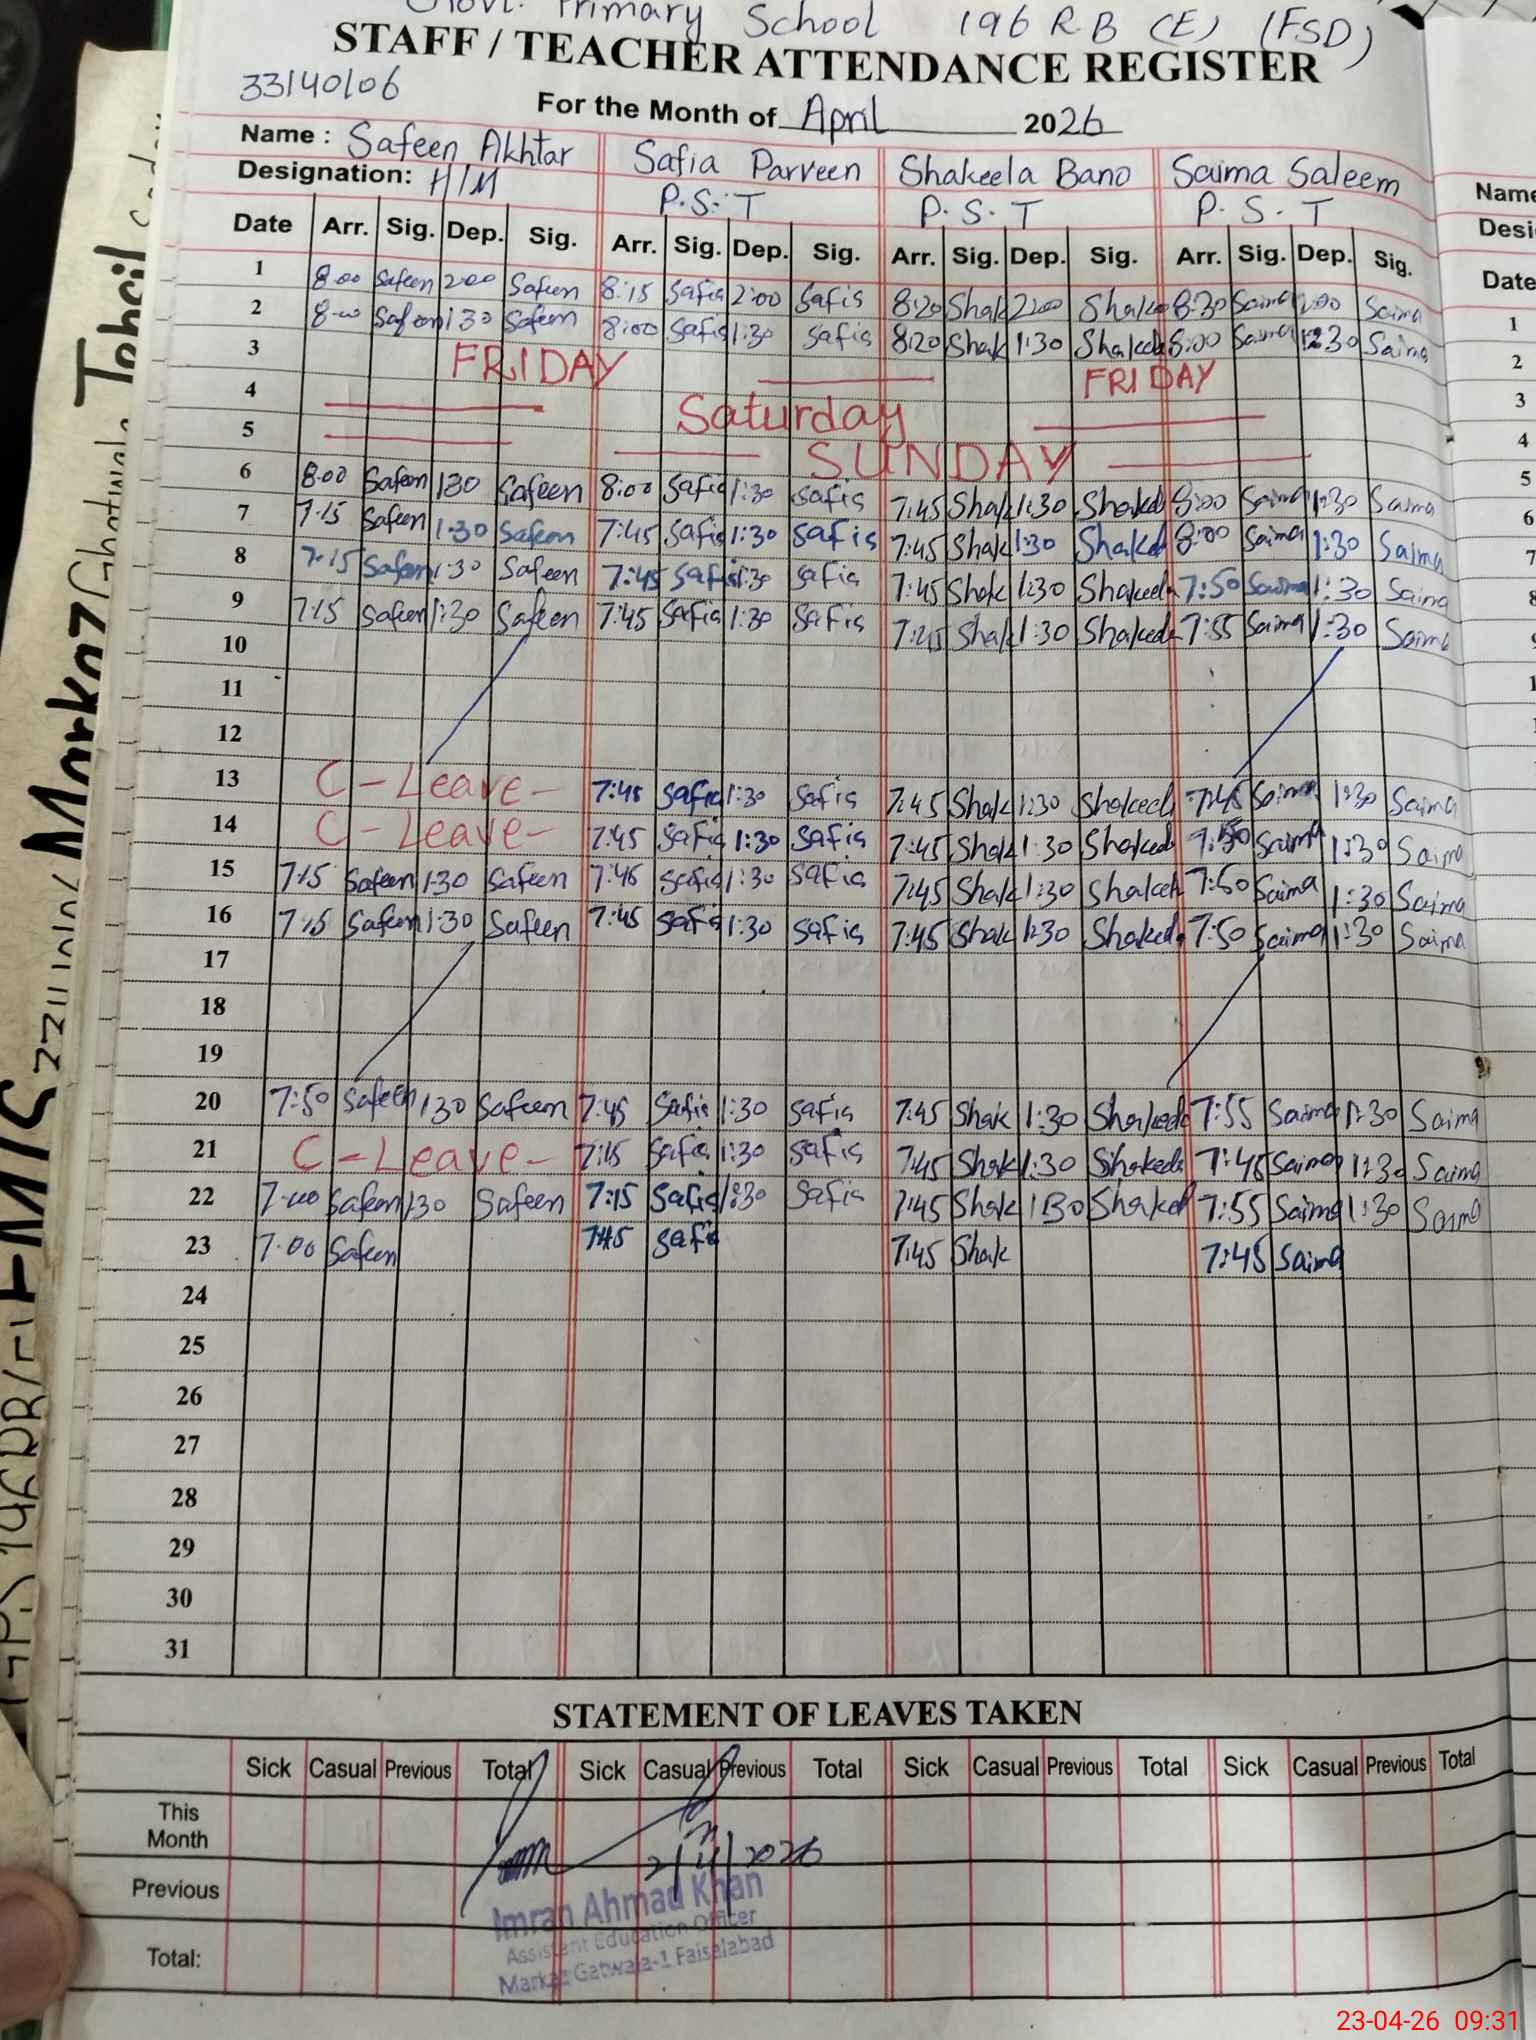 Govt. Primary School 196 RB (E) (FSD)
STAFF / TEACHER ATTENDANCE REGISTER
33140106
For the Month of April 2026
Name : Safeen Akhtar Safia Parveen Shakeela Bano Saima Saleem
Designation: H/M P.S.T P.S.T P.S.T
Date Arr. Sig. Dep. Sig. Arr. Sig. Dep. Sig. Arr. Sig. Dep. Sig. Arr. Sig. Dep. Sig.
1 8:00 Safeen 2:00 Safeen 8:15 Safia 2:00 Safia 8:20 Shak 2:00 Shake 8:30 Saima 2:00 Saima
2 8:00 Safeen 1:30 Safeen 8:00 Safia 1:30 Safia 8:20 Shak 1:30 Shakeela 8:00 Saima 1:30 Saima
3 FRIDAY FRIDAY
4 Saturday
5 SUNDAY
6 8:00 Safeen 1:30 Safeen 8:00 Safia 1:30 Safia 7:45 Shak 1:30 Shakeel 8:00 Saima 1:30 Saima
7 7:15 Safeen 1:30 Safeen 7:45 Safia 1:30 Safia 7:45 Shak 1:30 Shakeel 8:00 Saima 1:30 Saima
8 7:15 Safeen 1:30 Safeen 7:45 Safia 1:30 Safia 7:45 Shak 1:30 Shakeela 7:50 Saima 1:30 Saima
9 7:15 Safeen 1:30 Safeen 7:45 Safia 1:30 Safia 7:45 Shak 1:30 Shakeela 7:55 Saima 1:30 Saima
10
11
12
13 C-Leave- 7:45 Safia 1:30 Safia 7:45 Shak 1:30 Shakeel 7:45 Saima 1:30 Saima
14 C-Leave- 7:45 Safia 1:30 Safia 7:45 Shak 1:30 Shakeel 7:50 Saima 1:30 Saima
15 7:15 Safeen 1:30 Safeen 7:45 Safia 1:30 Safia 7:45 Shak 1:30 Shakeel 7:50 Saima 1:30 Saima
16 7:15 Safeen 1:30 Safeen 7:45 Safia 1:30 Safia 7:45 Shak 1:30 Shakeel 7:50 Saima 1:30 Saima
17
18
19
20 7:50 Safeen 1:30 Safeen 7:45 Safia 1:30 Safia 7:45 Shak 1:30 Shakeela 7:55 Saima 1:30 Saima
21 C-Leave- 7:15 Safia 1:30 Safia 7:45 Shak 1:30 Shakeela 7:45 Saima 1:30 Saima
22 7:00 Safeen 1:30 Safeen 7:15 Safia 1:30 Safia 7:45 Shak 1:30 Shakeel 7:55 Saima 1:30 Saima
23 7:00 Safeen 7:45 Safia 7:45 Shak 7:45 Saima
24
25
26
27
28
29
30
31
STATEMENT OF LEAVES TAKEN
Sick Casual Previous Total Sick Casual Previous Total Sick Casual Previous Total Sick Casual Previous Total
This Month
Previous
Total:
Imran Ahmad Khan
Assistant Education Officer
Markaz Gatwala-1 Faisalabad
Name
Desi
Date
1
2
3
4
5
6
7
8
Markaz Ghatwala Tehsil
23-04-26 09:31